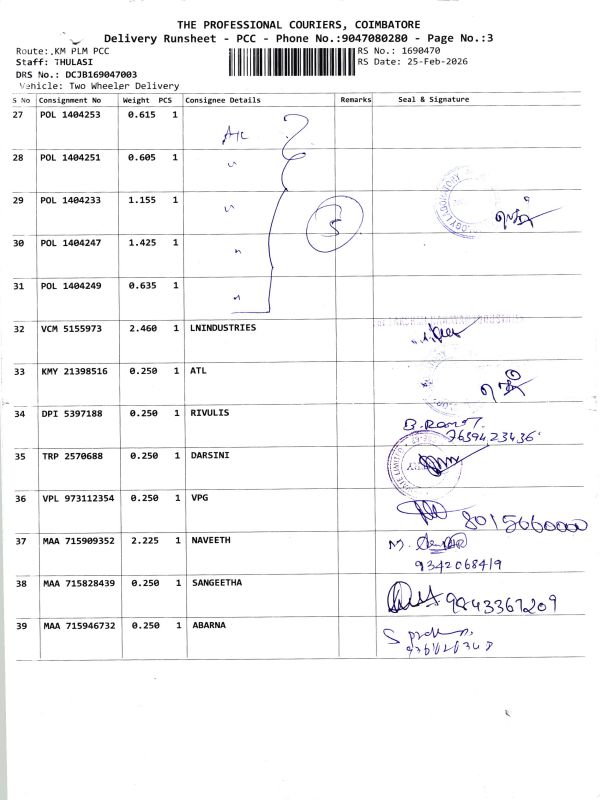 THE PROFESSIONAL COURIERS, COIMBATORE
Delivery Runsheet - PCC - Phone No.:9047080280 - Page No.:3
Route:.KM PLM PCC
RS No.: 1690470
Staff: THULASI
RS Date: 25-Feb-2026
DRS No.: DCJB169047003
Vehicle: Two Wheeler Delivery
S No Consignment No Weight PCS Consignee Details Remarks Seal & Signature
27 POL 1404253 0.615 1
28 POL 1404251 0.605 1 "
29 POL 1404233 1.155 1 " 5
30 POL 1404247 1.425 1 "
31 POL 1404249 0.635 1 "
32 VCM 5155973 2.460 1 LNINDUSTRIES
33 KMY 21398516 0.250 1 ATL
34 DPI 5397188 0.250 1 RIVULIS
7639423436
35 TRP 2570688 0.250 1 DARSINI
36 VPL 973112354 0.250 1 VPG
8015660000
37 MAA 715909352 2.225 1 NAVEETH M.
9342068419
38 MAA 715828439 0.250 1 SANGEETHA 9843367209
39 MAA 715946732 0.250 1 ABARNA